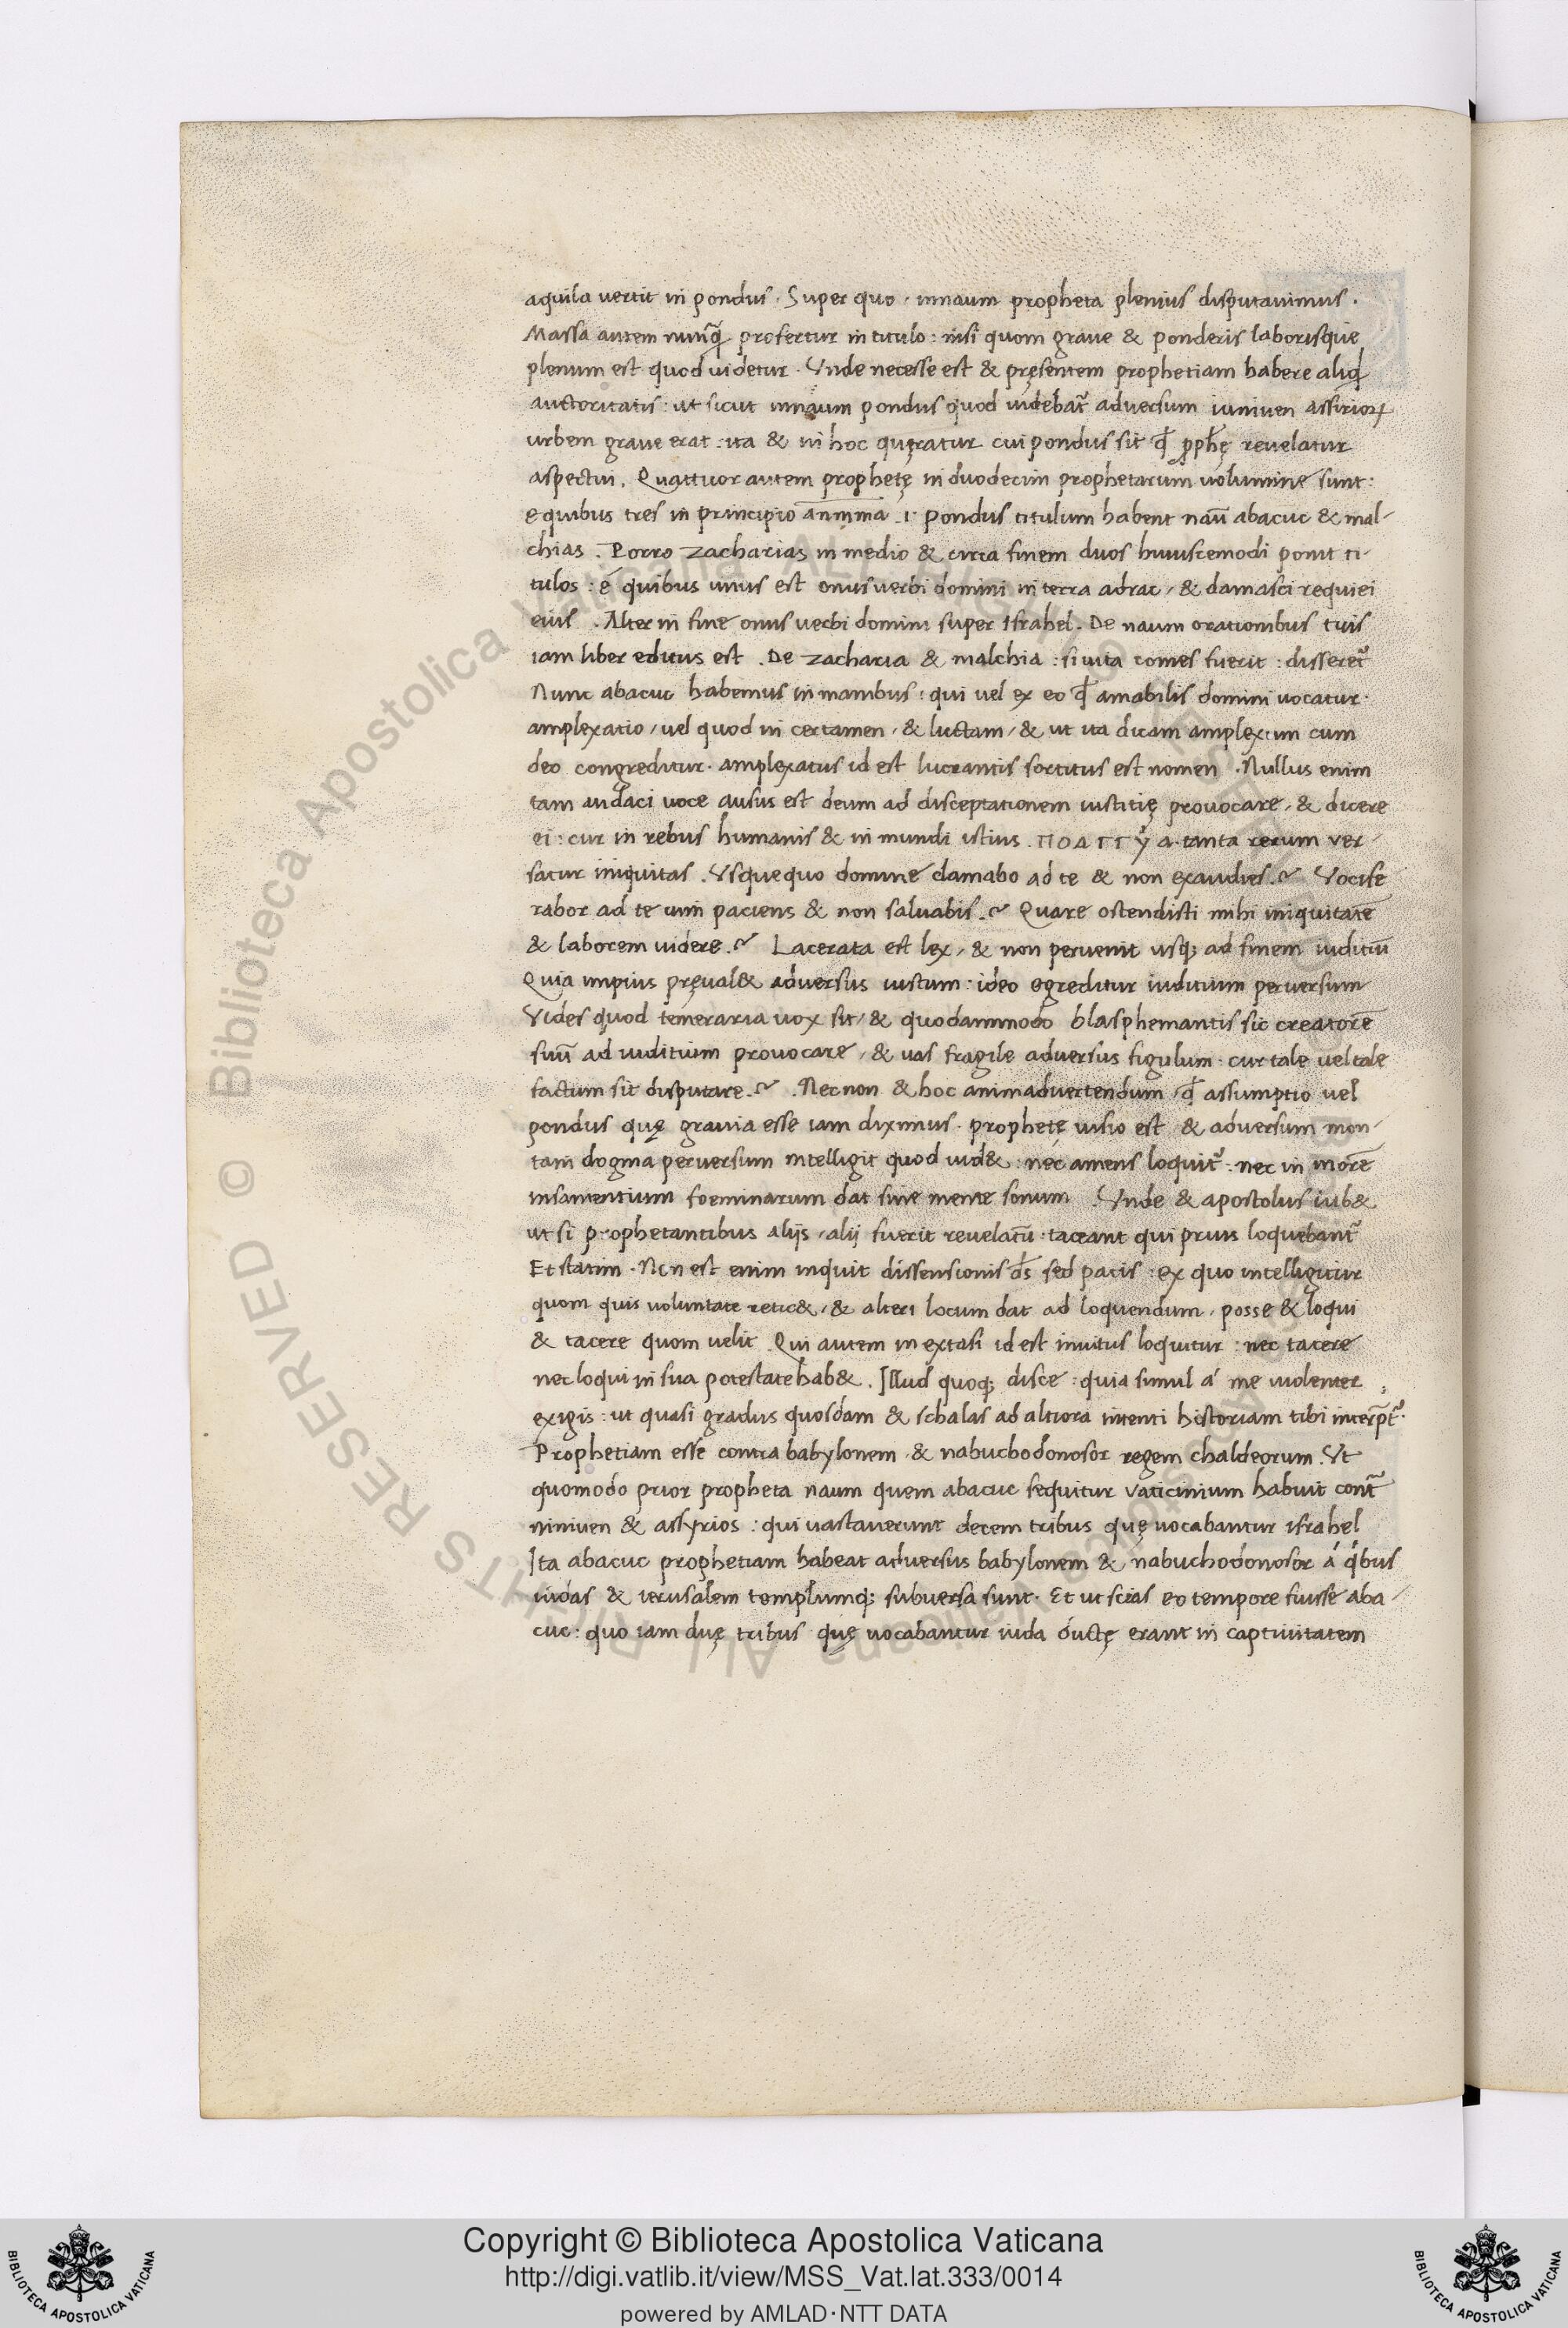 aquila vertit in pondus. Super quo, innaum propheta plenius disputavimus.
Massa autem nunq̃ profertur in titulo: nisi quom grave & ponderis laborisque
plenum est quod videtur. Vnde necesse est & pręsentem prophetiam habere aliq̃
auctoritatis: ut sicut innaum pondus quod videbat᷑ adversum iuniven assirioꝝ
urbem grave erat: ita & in hoc quęratur cui pondus sit qđ ꝓphę revelatur
aspectui. Quattuor autem prophetę in duodecim prophetarum volumine sunt:
e quibus tres in principio an̄m̄ma .i. pondus titulum habent naū abacuc & mal-
chias. Porro zacharias in medio & circa finem duos huiuscemodi ponit ti-
tulos: é quibus unus est onus verbi domini in terra adrac, & damasci requiei
eius. Alter in fine onus verbi domini super Israhel. De naum orationibus tuis
iam liber editus est. De zacharia & malchia: si vita comes fuerit: disseret᷑
Nunc abacuc habemus in manibus: qui vel ex eo qđ amabilis domini vocatur.
amplexatio, vel quod in certamen, & luctam, & ut ita dicam amplexum cum
deo congreditur. amplexatus id est luctantis sortitus est nomen. Nullus enim
tam audaci voce ausus est deum ad disceptationem iustitię provocare, & dicere
ei: cur in rebus humanis & in mundi istius. ΠΟΛΙΤΥ α. tanta rerum ver-
satur iniquitas. Vsquequo domine clamabo ad te & non exaudies.~ Vocife
rabor ad te vim paciens & non salvabis.~ Quare ostendisti mihi iniquitatē
& laborem videre.~ Lacerata est lex, & non pervenit usq; ad finem iuditiū
Quia impius pręval& adversus iustum: ideo egreditur iuditium perversum
Vides quod temeraria vox sit, & quodammodo blasphemantis sic creatorē
suū ad iuditium provocare, & vas fragile adversus figulum. cur tale vel tale
factum sit disputare.~ . Nec non & hoc animadvertendum, qđ assumptio vel
pondus quę gravia esse iam diximus. prophetę visio est & adversum mon-
tani dogma perversum intelligit quod vid&: nec amens loquit᷑: nec in morē
insanientium foeminarum dat sine mente sonum. Vnde & apostolus iub&
ut si prophetantibus alijs, alij fuerit revelatū: taceant qui prius loquebant᷑
Et statim. Non est enim inquit dissensionis ds̄ sed pacis: ex quo intelligitur
quom quis voluntate retic&, & alteri locum dat ad loquendum, posse & loqui
& tacere quom velit. Qui autem in extasi id est invitus loquitur: nec tacere
nec loqui in sua potestate hab&. Illud quoq; disce: quia simul á me violenter
exigis: ut quasi gradus quosdam & schalas ad altiora nitenti historiam tibi interp̄t᷑.
Prophetiam esse contra babylonem, & nabuchodonosor regem chaldeorum. Vt
quomodo prior propheta naum quem abacuc sequitur vaticinium habuit contᷓ
niniven & assyrios: qui vastaverunt decem tribus quę vocabantur israhel
Ita abacuc prophetiam habeat adversus babylonem & nabuchodonosor á qͥbus
iudas & ierusalem templumq; subversa sunt. Et ut scias eo tempore fuisse aba-
cuc: quo iam duę tribus quę vocabantur iuda ductę erant in captivitatem
© Biblioteca Apostolica Vaticana ALL RIGHTS RESERVED
Copyright © Biblioteca Apostolica Vaticana
http://digi.vatlib.it/view/MSS_Vat.lat.333/0014
powered by AMLAD·NTT DATA
BIBLIOTECA APOSTOLICA VATICANA
BIBLIOTECA APOSTOLICA VATICANA